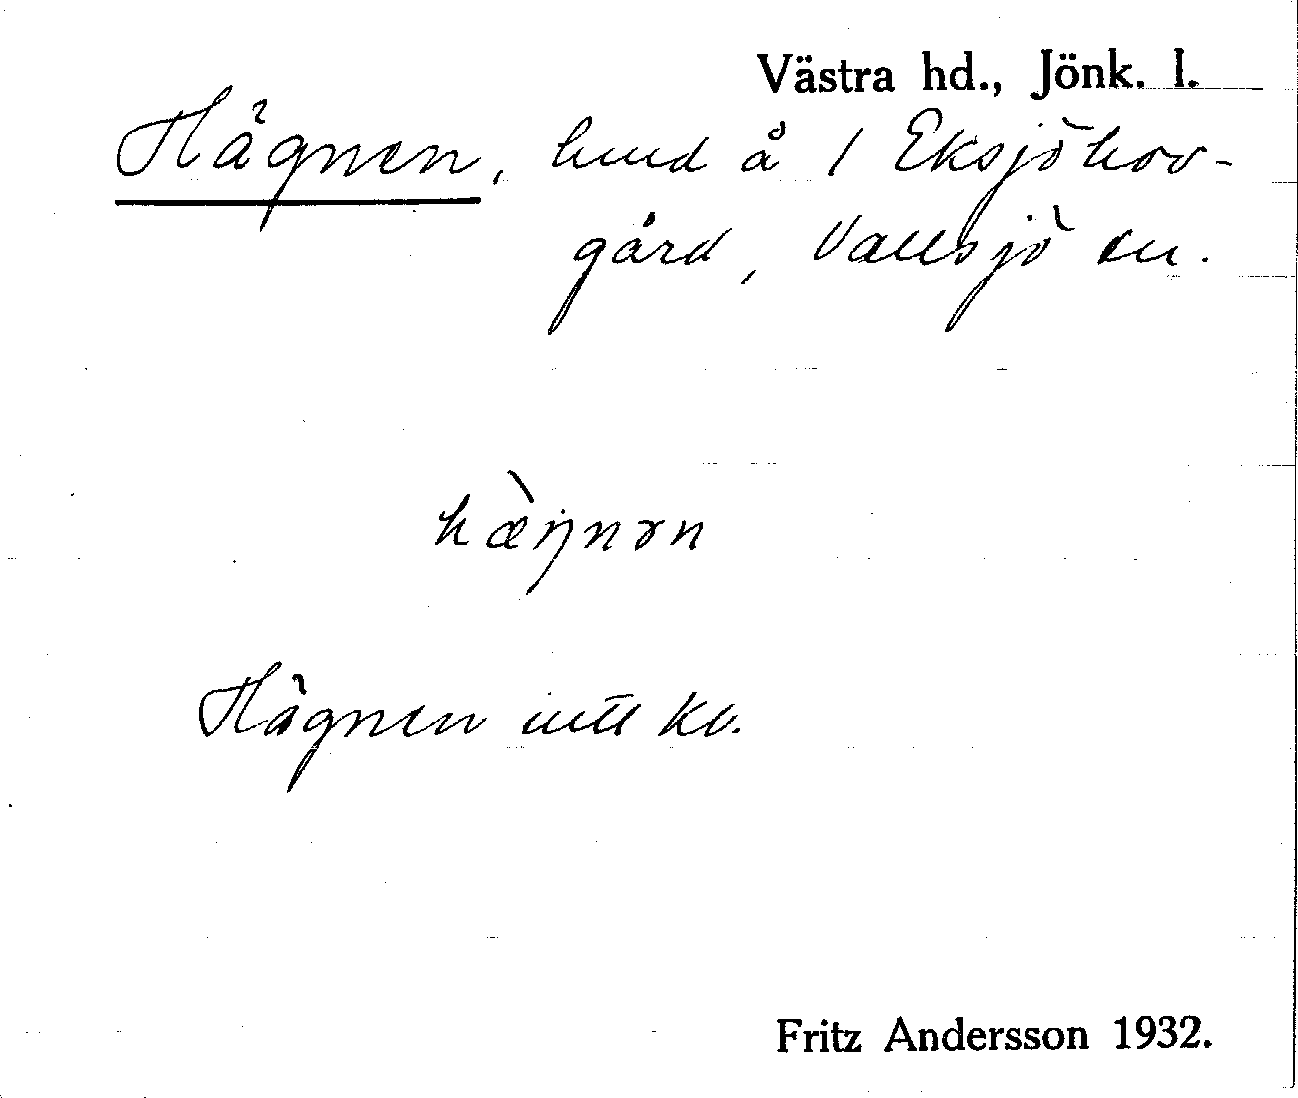 Västra hd., Jönk. l.
Hägnen, hmd å 1 Eksjöhov-
gård, Vallsjö sn.
hæ̀ŋnən
Hägnen utt kv.
Fritz Andersson 1932.